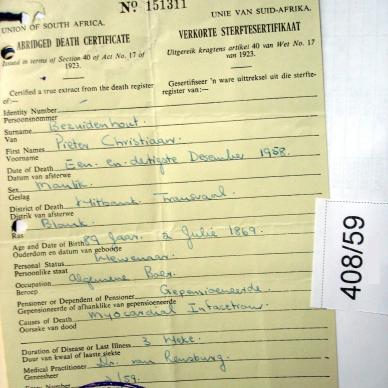 Nº 151311
UNION OF SOUTH AFRICA. UNIE VAN SUID-AFRIKA.
ABRIDGED DEATH CERTIFICATE VERKORTE STERFTESERTIFIKAAT
Issued in terms of Section 40 of Act No. 17 of 1923. Uitgereik kragtens artikel 40 van Wet No. 17 van 1923.
Certified a true extract from the death register of:— Gesertifiseer 'n ware uittreksel uit die sterfteregister van:—
Identity Number
Persoonsnommer
Surname Bezuidenhout.
Van
First Names Pieter Christiaan.
Voorname
Date of Death Een en dertigste Desember 1958.
Datum van afsterwe
Sex Manlik.
Geslag
District of Death Witbank Transvaal.
Distrik van afsterwe
Ras Blank.
Age and Date of Birth 89 Jaar. 2 Julie 1869.
Ouderdom en datum van geboorte
Personal Status Wewenaar.
Persoonlike staat
Occupation Algemene Boer.
Beroep
Pensioner or Dependent of Pensioner Gepensioeneerde.
Gepensioeneerde of afhanklike van gepensioeneerde
Causes of Death Myocardial
Oorsake van dood
Duration of Disease or Last Illness 3 Weke.
Duur van kwaal of laaste siekte
Medical Practitioner Dr. van Rensburg.
Geneesheer
Entry Number /59.
408/59